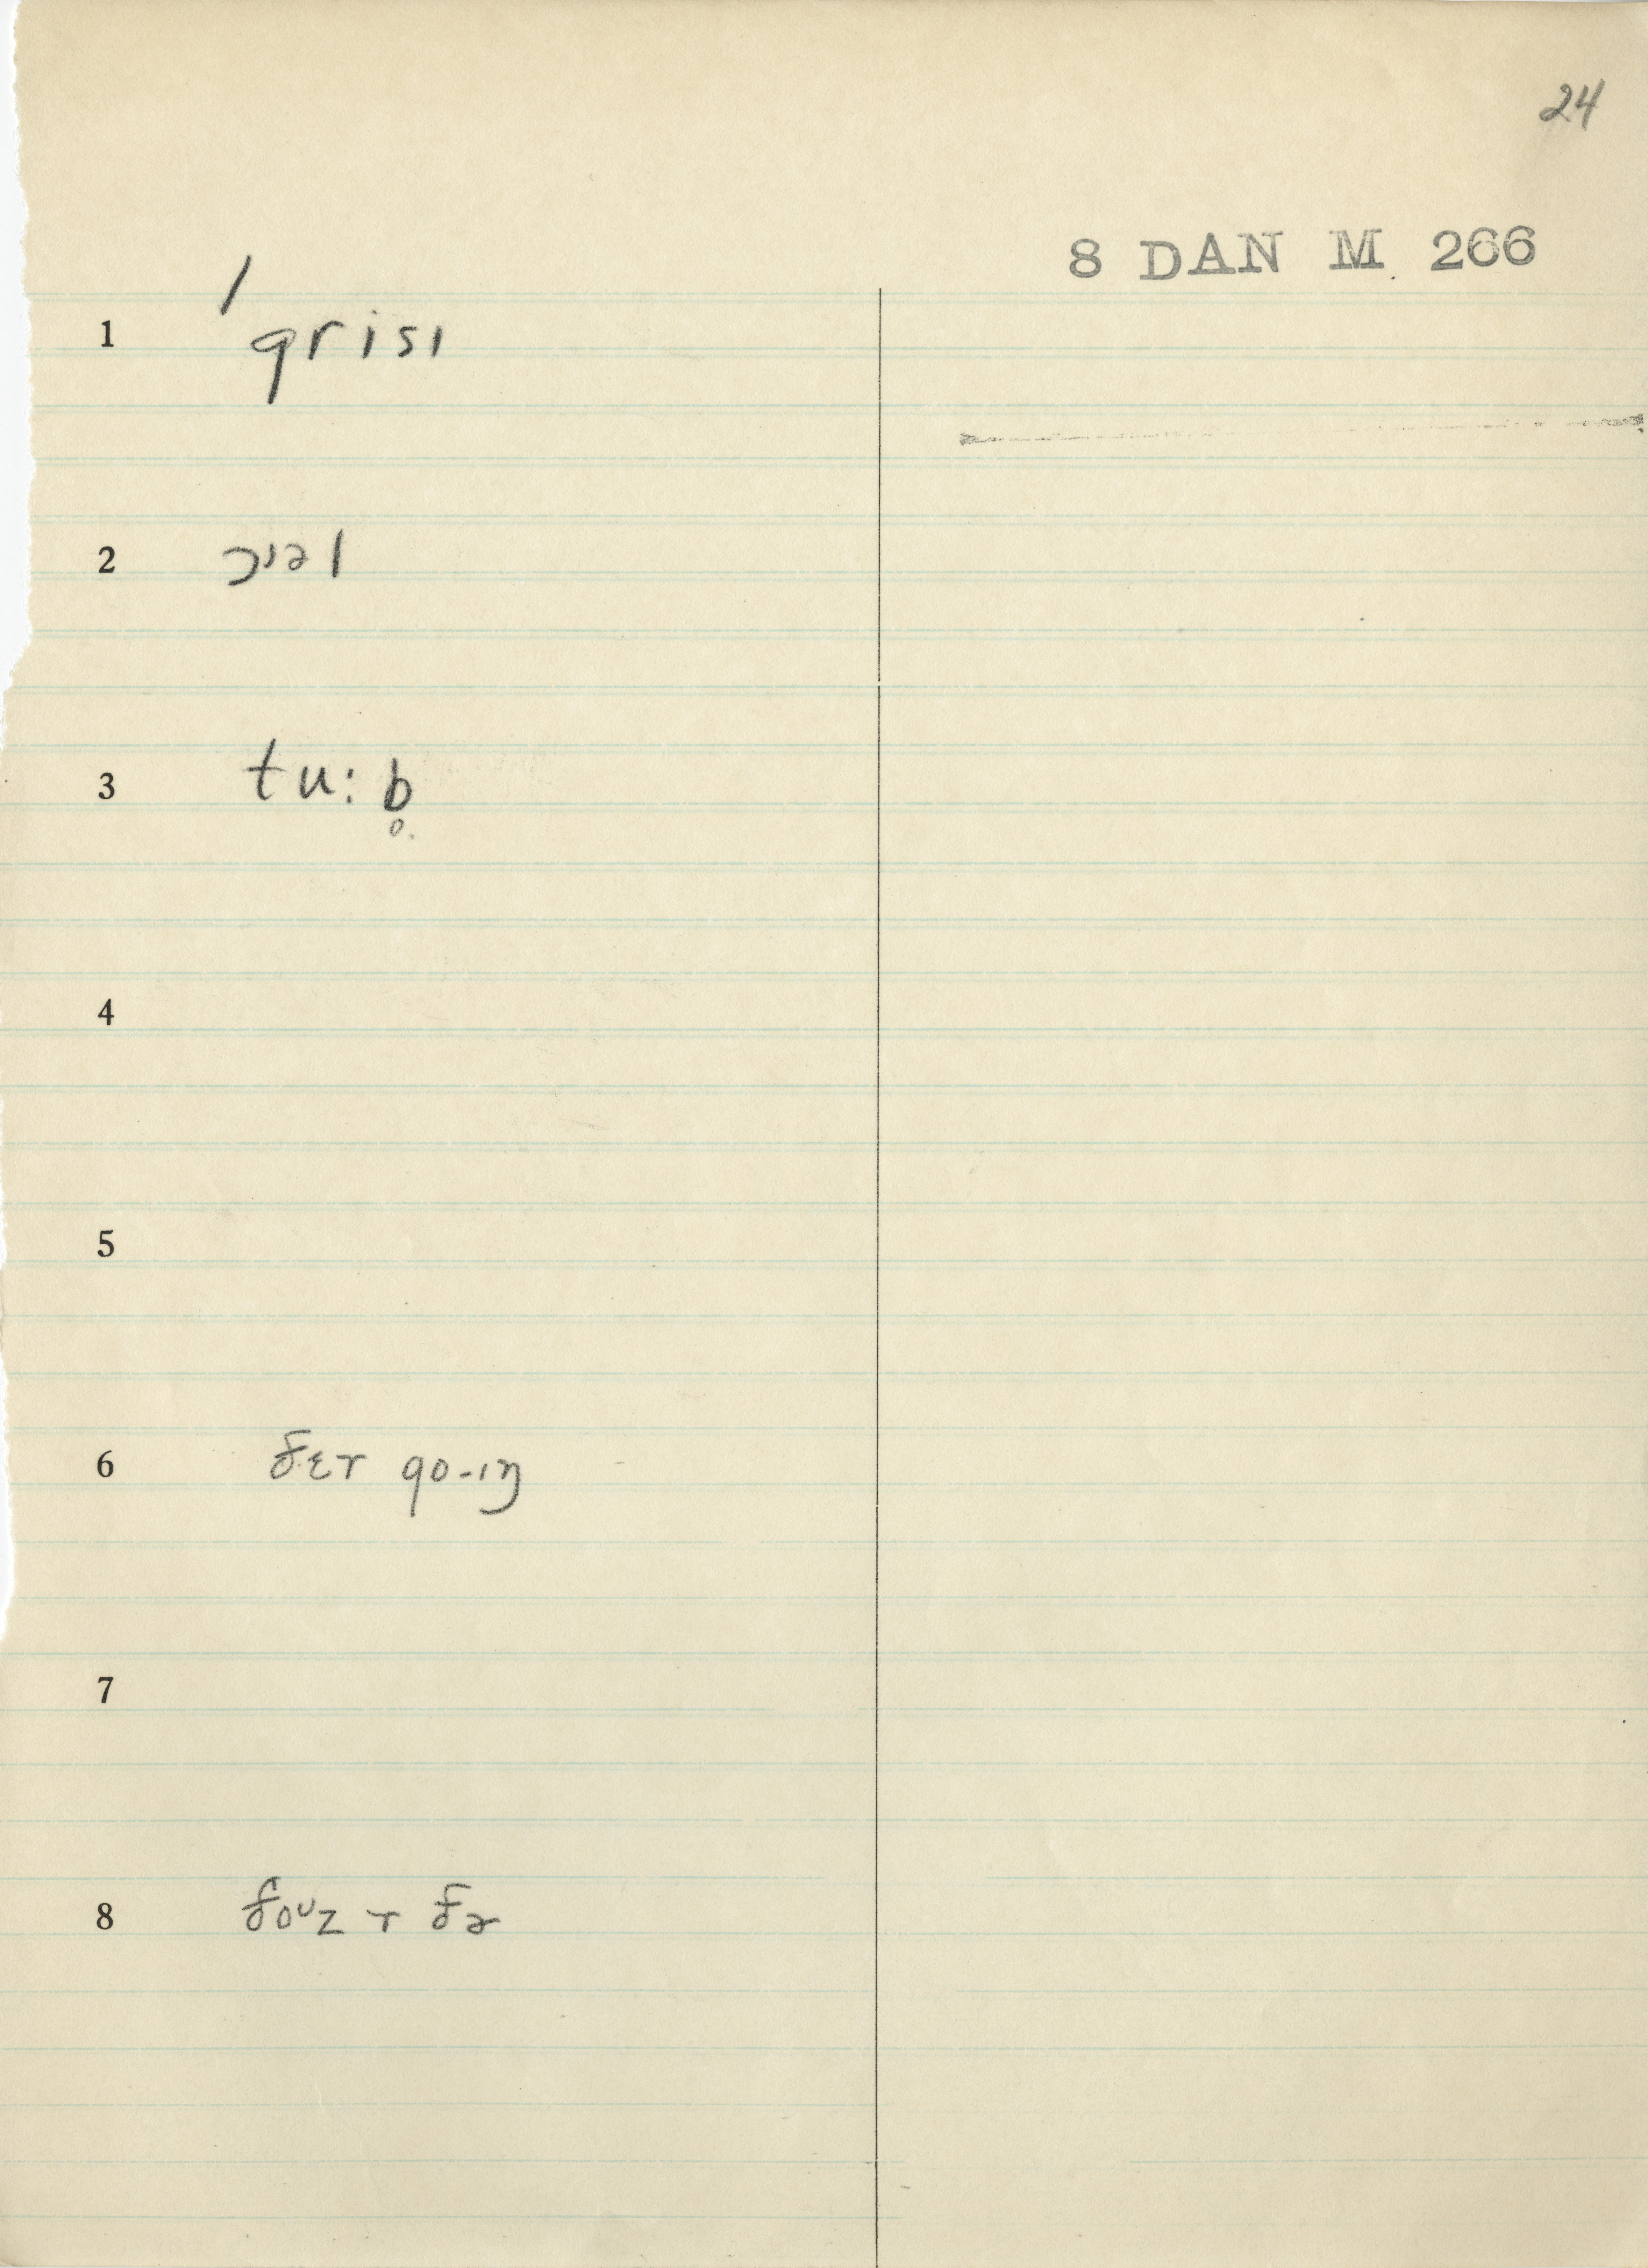 24
8 DAN M 266
/
1 grisɪ
2 ɔɪəl
3 tu:b̥
4
5
6 ðɛɚ go-ɪŋ
7
8 ðoᴜz ɚ ðə